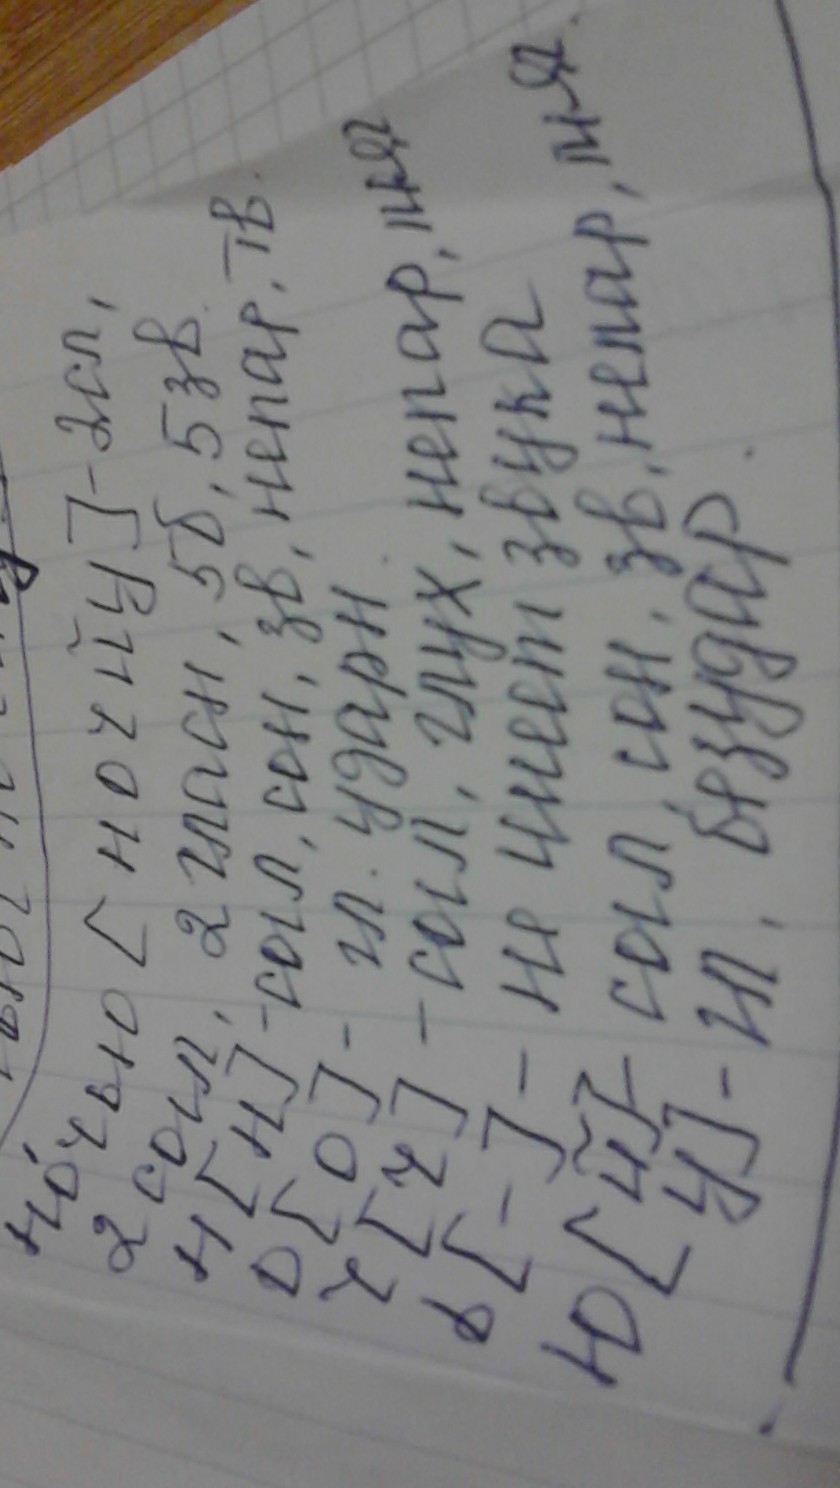 ночью [ночйу] - 2 сл,
2 согл, 2 гласн, 5б, 5 зв.
н [н] - согл, сон, зв, непар, тв.
о [о] - гл. ударн.
ч [ч] - согл, глух, непар, мяг
ь [-] - не имеет звука
ю [й] согл, сон, зв, непар, мяг.
[у] - гл, безудар.